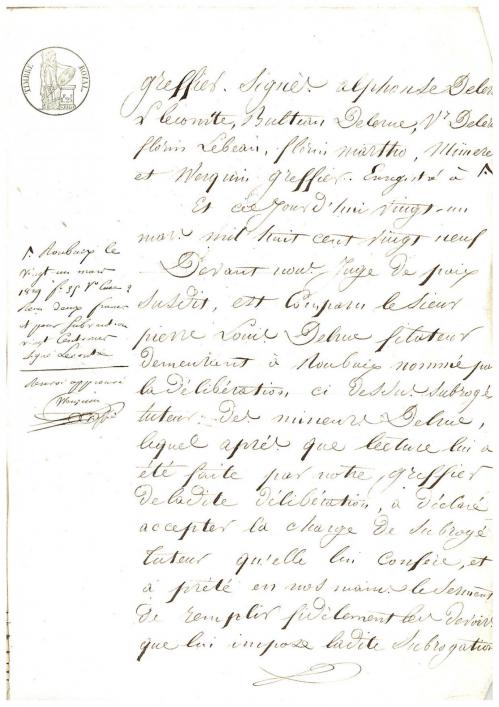 TIMBRE ROYAL
greffier. Signés alphonse Deler
Lecomte, Delerue, Vr Deler
florin Lebeau, florin martho, Mimere
et Werquin greffier. Enregistré à
Et ce jourd'hui vingt-un
mars mil huit cent vingt neuf
Devant nous Juge de paix
susdit, est comparu le sieur
pierre Louis Delrue filateur
demeurant à Roubaix nommé pa
la délibération ci dessus subrogé
tuteur des mineurs Delrue,
lequel après que lecture lui a
été faite par notre greffier
de ladite délibération, a déclaré
accepter la charge de subrogé
tuteur qu'elle lui confère, et
a prêté en nos mains le serment
de remplir fidèlement les devoirs
que lui impose ladite subrogation
Roubaix le
vingt un mars
1829 f. 35 Vo Case 2
deux francs
et pour subvention
vingt centimes
signé Lecomte
Renvoi approuvé
Werquin